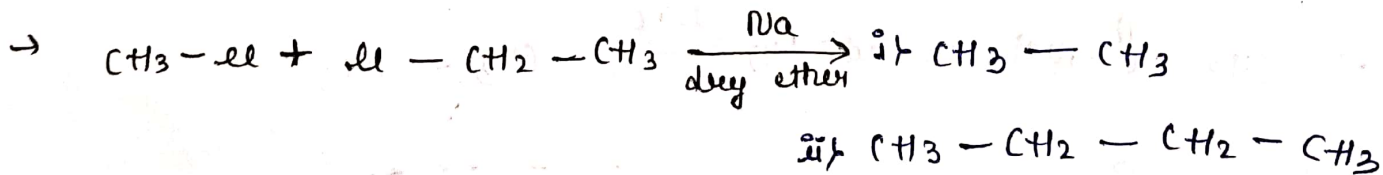 → CH3 - Cl + Cl - CH2 - CH3 Na dry ether → i} CH3 - CH3
ii} CH3 - CH2 - CH2 - CH3